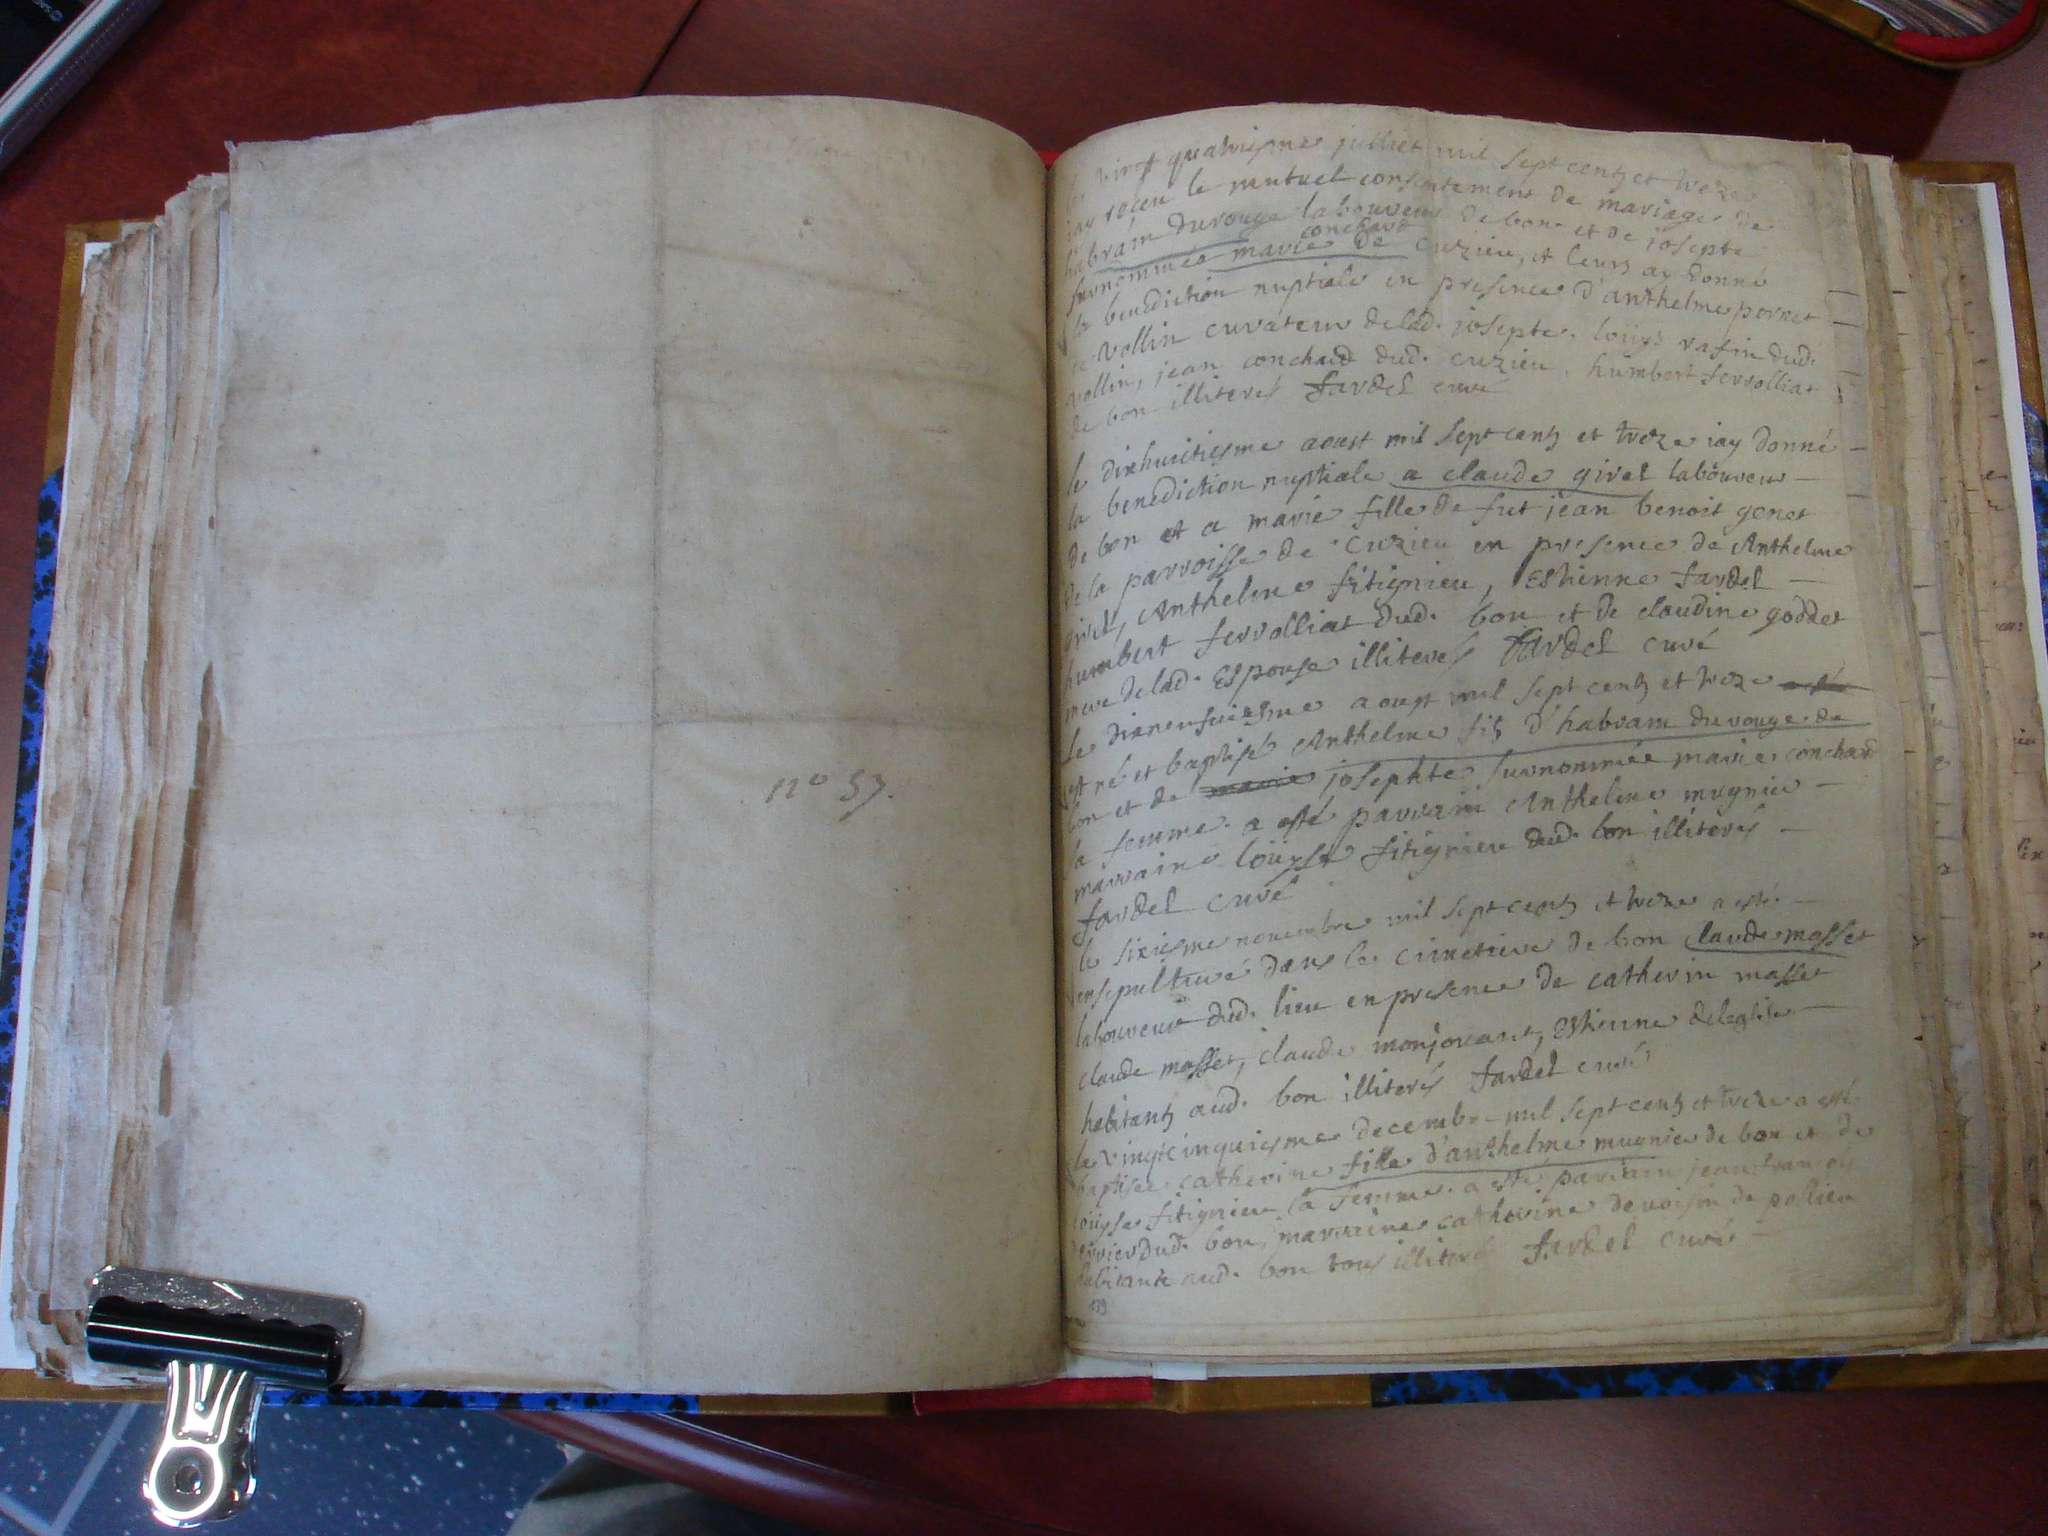 n° 57.
vingt quatriesme julliet mil sept centz et treze
jay reçeu le mutuel consentement de mariage de
habram durouge laboureur de bon et de josepte
conchard
surnommée marie de cuzieu, et leurs ay donné
la benediction nuptiale en presence d'anthelme pornet
de vollin curateur delad. josepte. loüys rafin dud.
vollin, jean conchard dud. cuzieu, humbert ferrolliat
de bon illiterés fardel curé
le dixhuictiesme aoust mil sept centz et treze iay donné
la benediction nuptiale a claude giret laboureur
de bon et a marie fille de fut jean benoit genet
de la parroisse de cuzieu en presence de Anthelme
giret, Anthelme fitignieu, Estienne fardel
humbert ferrolliat dud. bon et de claudine goddet
mere delad. Espouse illiterés fardel curé
Le dixneufuiesme aoust mil sept centz et treze
est né et baptisé Anthelme fis d'habram durouge de
bon et de marie josephte surnommée marie conchard
sa femme. a esté parrain Anthelme mugnier
marraine loüyse fitignieu dud. bon illiterés
fardel curé
le sixiesme novembre mil sept centz et treze a esté
ensepulturé dans le cimetiere de bon claude masset
laboureur dud. lieu en presence de catherin masset
claude masset, claude monjouant, Estienne deleglise
habitantz aud. bon illiterés fardel curé
le vingtcinquiesme decembre mil sept centz et treze a esté
baptisee catherine fille d'anthelme mugnier de bon et de
loüyse fitignieu sa femme. a esté parrain jean françois
dud. bon, marraine catherine devoisin de polieu
habitante aud. bon tous illiterés fardel curé
139